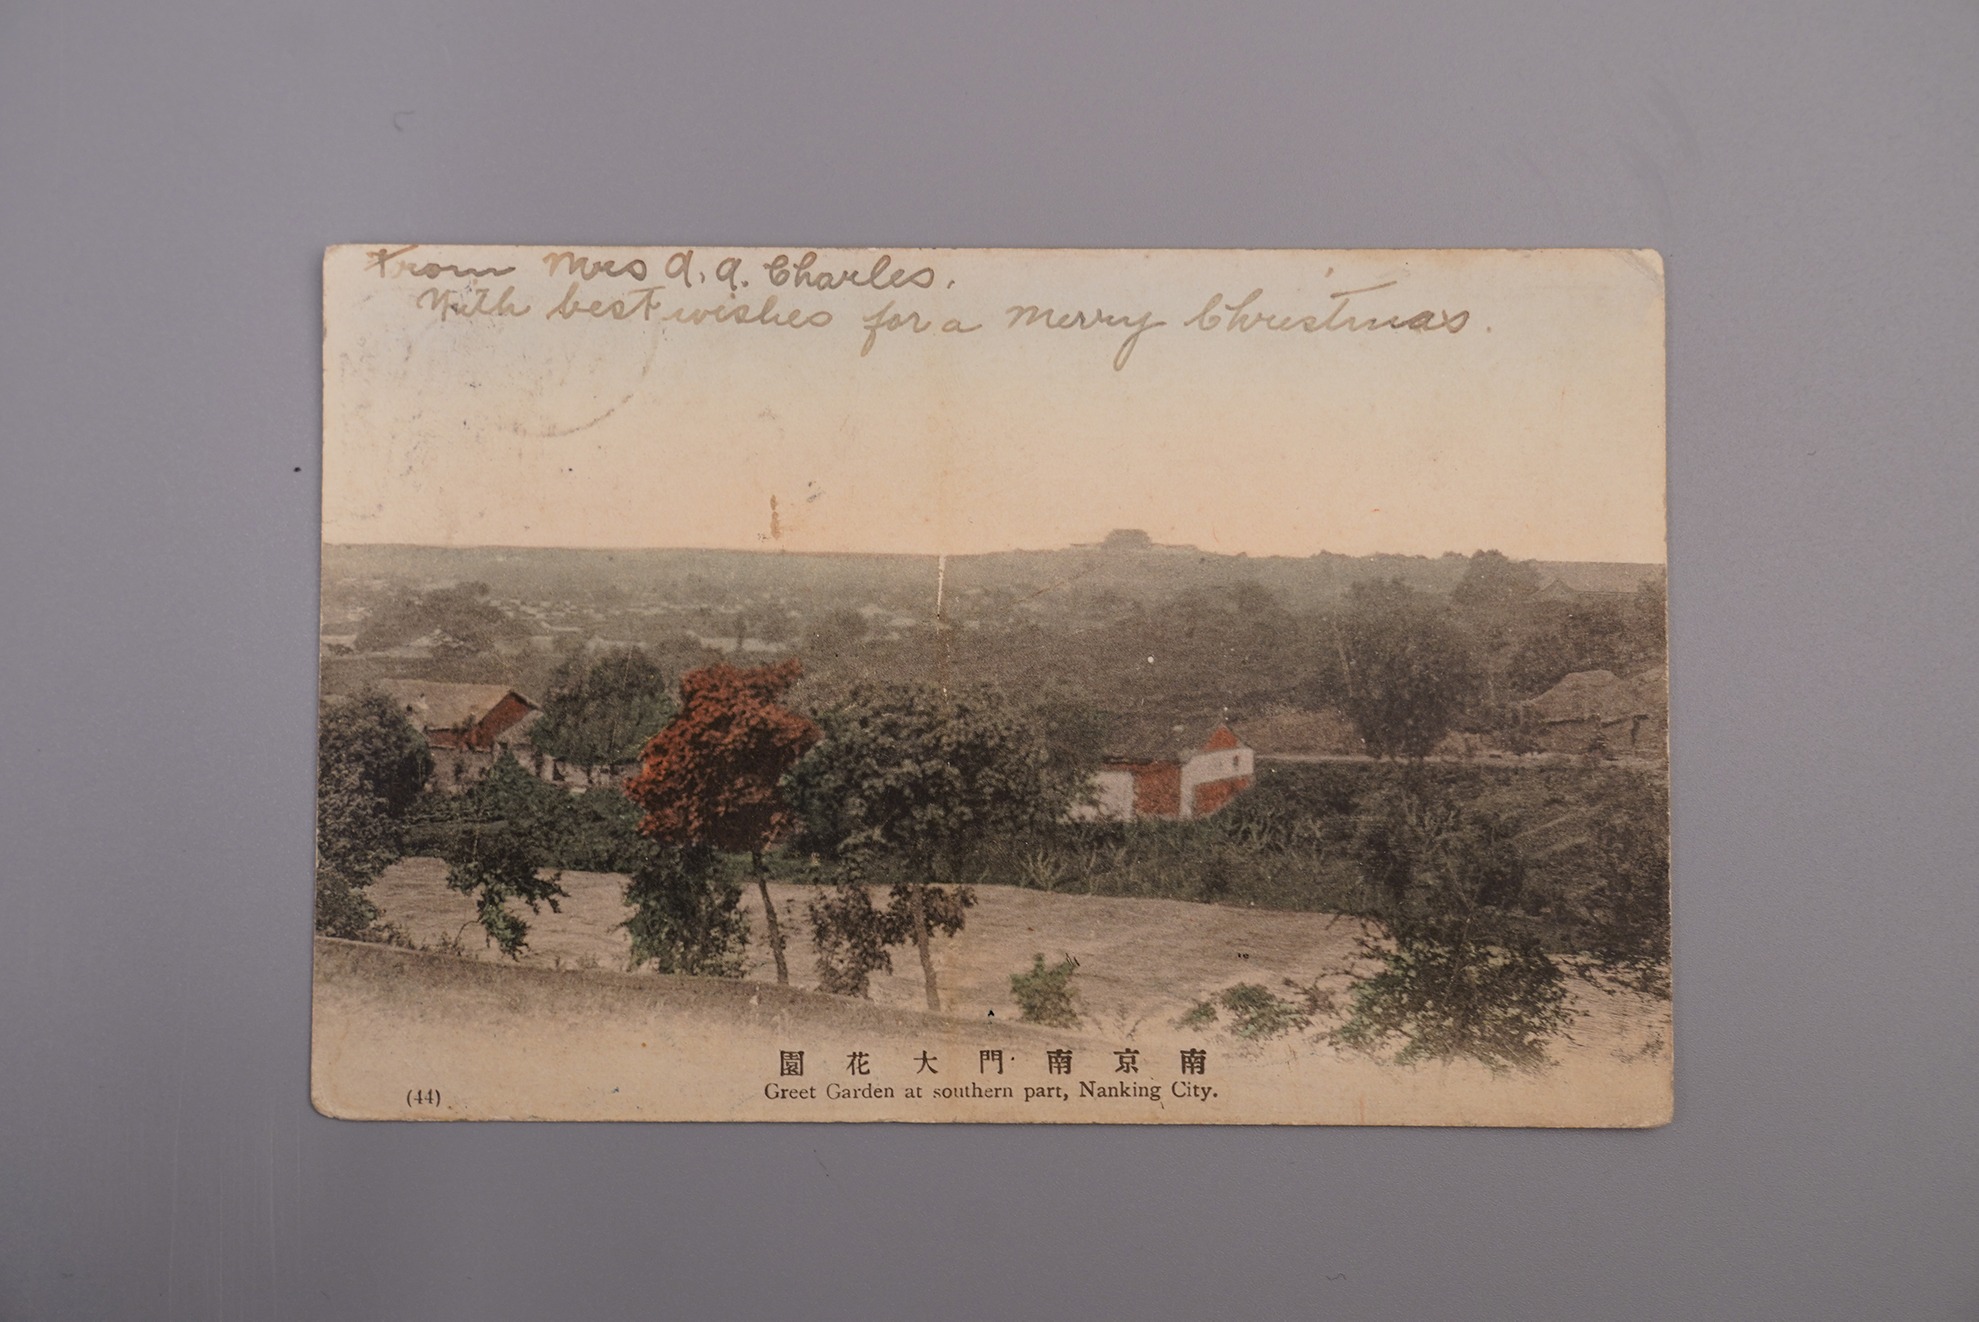 From Mrs A. A. Charles.
With best wishes for a Merry Christmas.
南京南門大花園
Greet Garden at southern part, Nanking City.
(44)